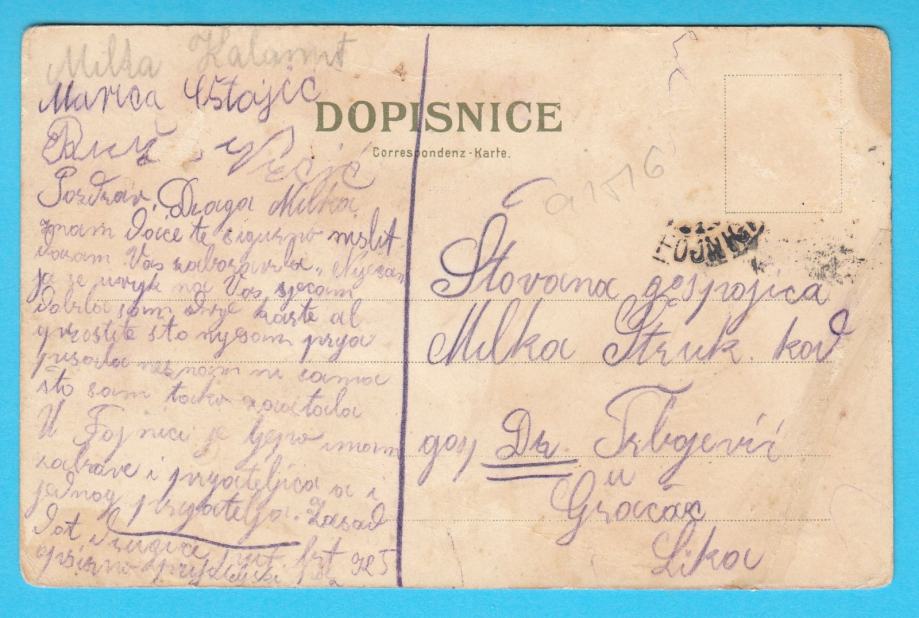 Milka Kalamit
Marica Ostojić
DOPISNICE
Correspondenz-Karte.
Pozdrav. Draga Milka
znam Joice te sigurno mslit
da sam Vas zaboravila. Nijesam
ja se uvyk na Vas sjecam
dobila sam dvje karte al
prostite sto nijesam prija
pisala neznam ni sama
sto sam tako zaostala
U Fojnici je ljepo imam
zabave i pryateljica a i
jednog pryatelja. Zasad
dot drugi put
FOJNICA
Štovana gospojica
Milka Štruk. kod
gosp Dr. Trbojević
u
Gračac
Lika